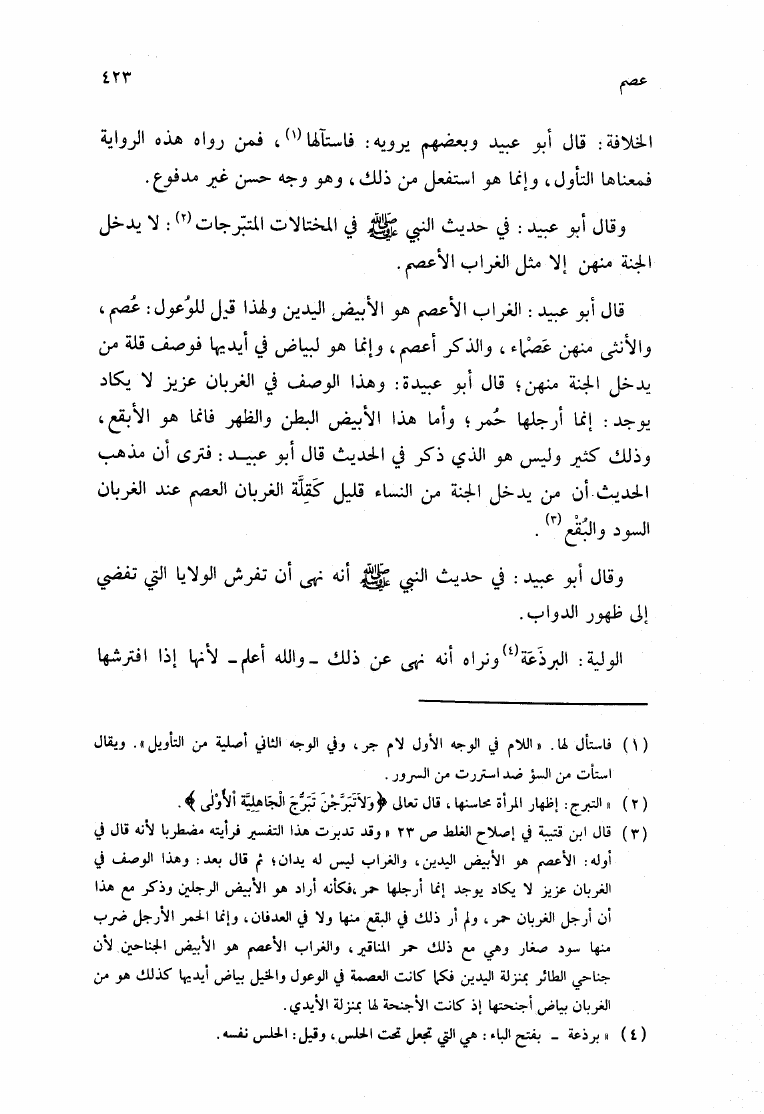 عصم ٤٢٣
الخلافة : قال أبو عبيد وبعضهم يرويه : فاستآلها(١) ، فمن رواه هذه الرواية
فمعناها التأول ، وإنما هو استفعل من ذلك ، وهو وجه حسن غير مدفوع .
وقال أبو عبيد : في حديث النبي ﷺ في المختالات المتبّرجات(٢) : لا يدخل
الجنة منهن إلا مثل الغراب الأعصم .
قال أبو عبيد : الغراب الأعصم هو الأبيض اليدين ولهذا قيل للوُعول : عُصم ،
والأنثى منهن عَصْماء ، والذكر أعصم ، وإنما هو لبياض في أيديها فوصف قلة من
يدخل الجنة منهن ؛ قال أبو عبيدة : وهذا الوصف في الغربان عزيز لا يكاد
يوجد : إنما أرجلها حُمر ؛ وأما هذا الأبيض البطن والظهر فانما هو الأبقع ،
وذلك كثير وليس هو الذي ذكر في الحديث قال أبو عبيد : فترى أن مذهب
الحديث أن من يدخل الجنة من النساء قليل كَقِلَّة الغربان العصم عند الغربان
السود والبُقْع(٣) .
وقال أبو عبيد : في حديث النبي ﷺ أنه نهى أن تفرش الولايا التي تفضي
إلى ظهور الدواب .
الولية : البرذَعَة(٤) ونراه أنه نهى عن ذلك ـ والله أعلم ـ لأنها إذا افترشها
(١) فاستأل لها . « اللام في الوجه الأول لام جر ، وفي الوجه الثاني أصلية من التأويل » . ويقال
استأت من السؤ ضد استررت من السرور .
(٢) « التبرج : إظهار المرأة محاسنها ، قال تعالى ﴿ وَلاَتَبَرَّجْنَ تَبَرُّجَ الْجَاهِلِيَّةِ الأُوْلَى ﴾ .
(٣) قال ابن قتيبة في إصلاح الغلط ص ٢٣ « وقد تدبرت هذا التفسير فرأيته مضطربا لأنه قال في
أوله : الأعصم هو الأبيض اليدين ، والغراب ليس له يدان ؛ ثم قال بعد : وهذا الوصف في
الغربان عزيز لا يكاد يوجد إنما أرجلها حمر ، فكأنه أراد هو الأبيض الرجلين وذكر مع هذا
أن أرجل الغربان حمر ، ولم أر ذلك في البقع منها ولا في الغدفان ، وإنما الحمر الأرجل ضرب
منها سود صغار وهي مع ذلك حمر المناقير ، والغراب الأعصم هو الأبيض الجناحين لأن
جناحي الطائر بمنزلة اليدين فكما كانت العصمة في الوعول والخيل بياض أيديها كذلك هو من
الغربان بياض أجنحتها إذ كانت الأجنحة لها بمنزلة الأيدي .
(٤) « برذعة ـ بفتح الباء : هي التي تجعل تحت الحلس ، وقيل : الحلس نفسه .